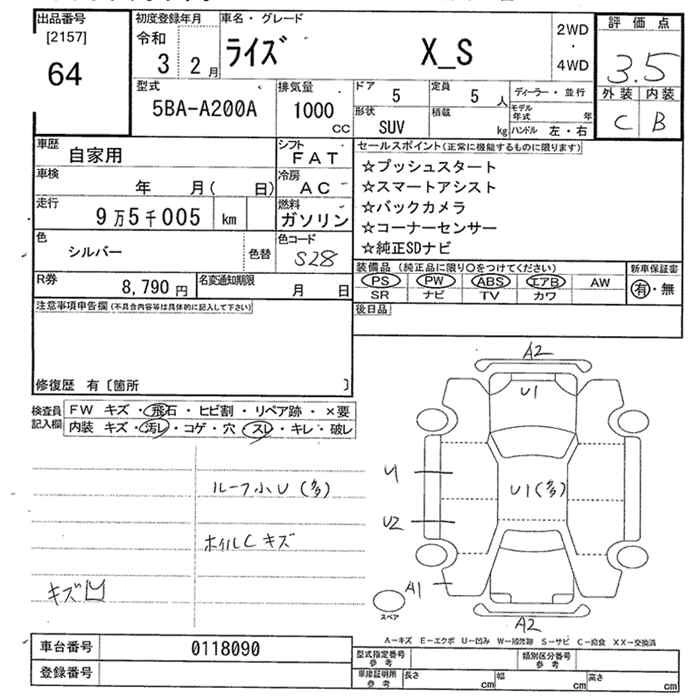 出品番号
[2157]
64
初度登録年月
令和
3 2月
車名・グレード
ライズ X_S
2WD
・
4WD
評価点
3.5
外装 内装
C B
型式
5BA-A200A
排気量
1000
CC
ドア 5
定員 5 人
形状
SUV
積載
kg
ディーラー・並行
モデル年式 年
ハンドル 左・右
車歴 自家用
シフト
FAT
車検
年 月( 日)
冷房
AC
走行
9万5千005 km
燃料
ガソリン
色
シルバー
色替
色コード
S28
R券
8,790円
名変通知期限
月 日
セールスポイント(正常に機能するものに限ります)
☆プッシュスタート
☆スマートアシスト
☆バックカメラ
☆コーナーセンサー
☆純正SDナビ
装備品 (純正品に限り○をつけてください)
PS PW ABS エアB AW
SR ナビ TV カワ
新車保証書
有・無
後日品
注意事項申告欄(不具合内容等は具体的に記入して下さい)
修復歴 有〔箇所 〕
検査員
記入欄
FW キズ・飛石・ヒビ割・リペア跡・×要
内装 キズ・汚レ・コゲ・穴・スレ・キレ・破レ
ルーフ小U(多)
ホイルCキズ
キズ
A2
U1
U1(多)
U
U2
A1
A2
スペア
A-キズ E-エクボ U-凹み W-補修跡 S-サビ C-腐食 XX-交換済
車台番号 0118090
登録番号
型式指定番号
参考
類別区分番号
参考
車庫証明所
参考
長さ cm
幅 cm
高さ cm